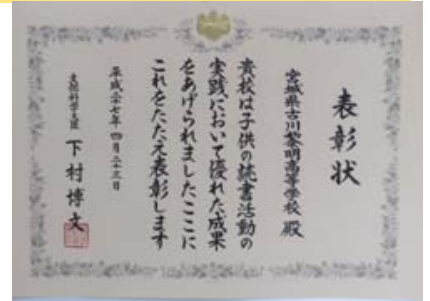 表彰状
宮城県古川黎明高等学校 殿
貴校は子供の読書活動の
実践において優れた成果
をあげられましたここに
これをたたえ表彰します
平成二十七年四月二十三日
文部科学大臣 下村博文